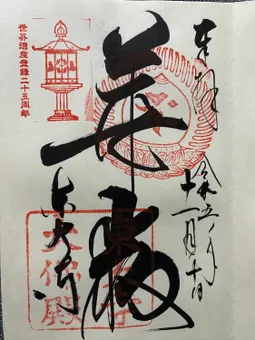 奉拝
令和五年
十一月十日
華厳
東大寺
世界遺産登録二十五周年
東大寺
大佛殿